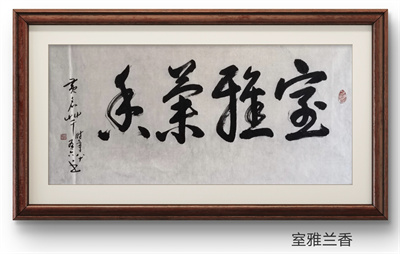 室雅蘭香
室雅兰香